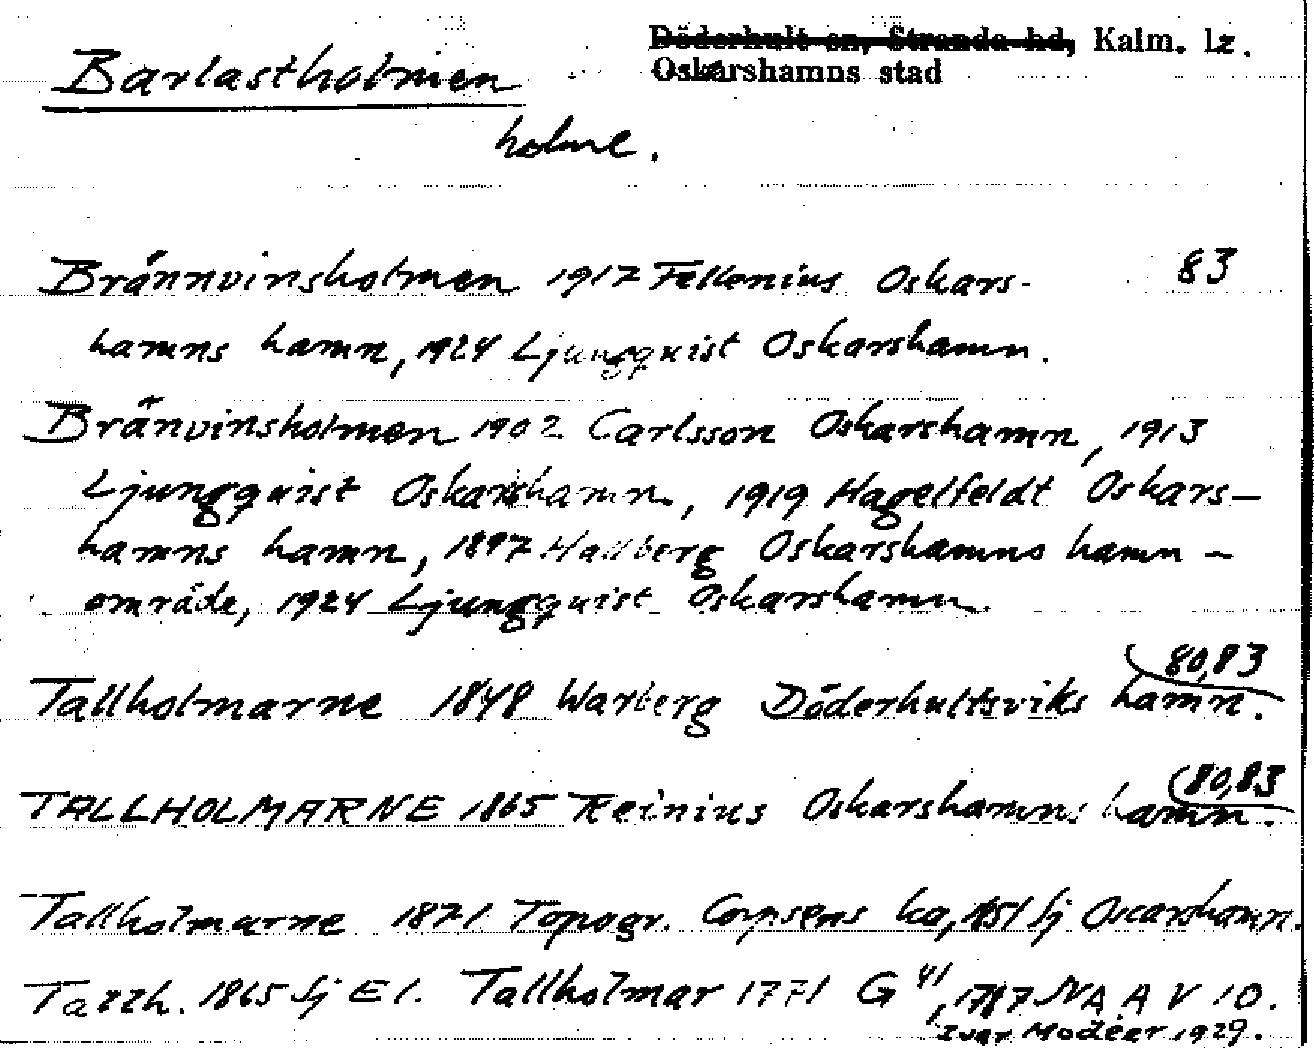 Döderhult sn, Stranda hd, Kalm. lz.
Barlastholmen Oskarshamns stad
holme.
Brännvinsholmen 1917 Fellenius Oskars- 83
hamns hamn, 1924 Ljungquist Oskarshamn.
Bränvinsholmen 1902 Carlsson Oskarshamn, 1913
Ljungquist Oskarshamn, 1919 Hagelfeldt Oskars-
hamns hamn, 1897 Hallberg Oskarshamns hamn-
område, 1924 Ljungquist Oskarshamn.
80,83
Tallholmarne 1848 Warberg Döderhultsviks hamn.
80,83
TALLHOLMARNE 1865 Reinius Oskarshamns hamn.
Tallholmarne 1871 Topogr. Corpsens ka, 1851 Sj Oscarshamn.
Tallh. 1865 Sj E1. Tallholmar 1771 G 41, 1787 NA A V 10.
Ivar Modéer 1929.